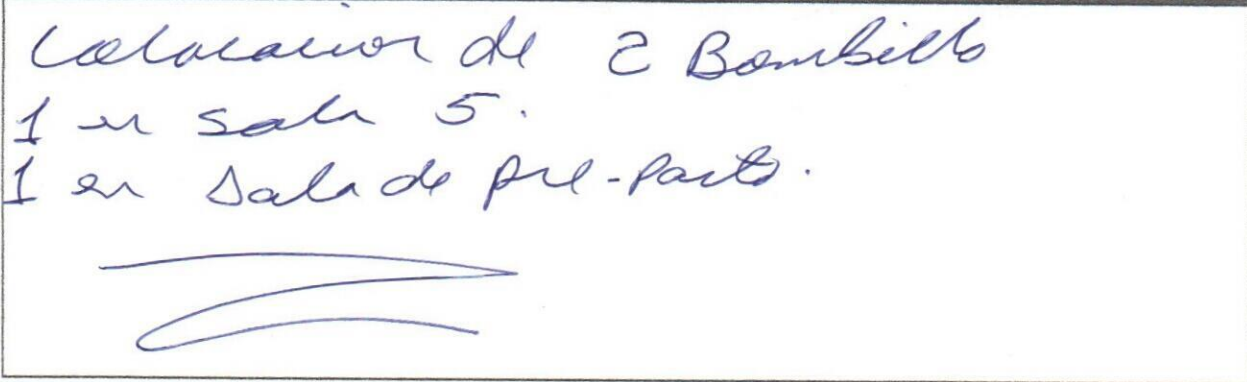 Colocacion de 2 Bombillo
1 en sala 5.
1 en sala de pre-parto.